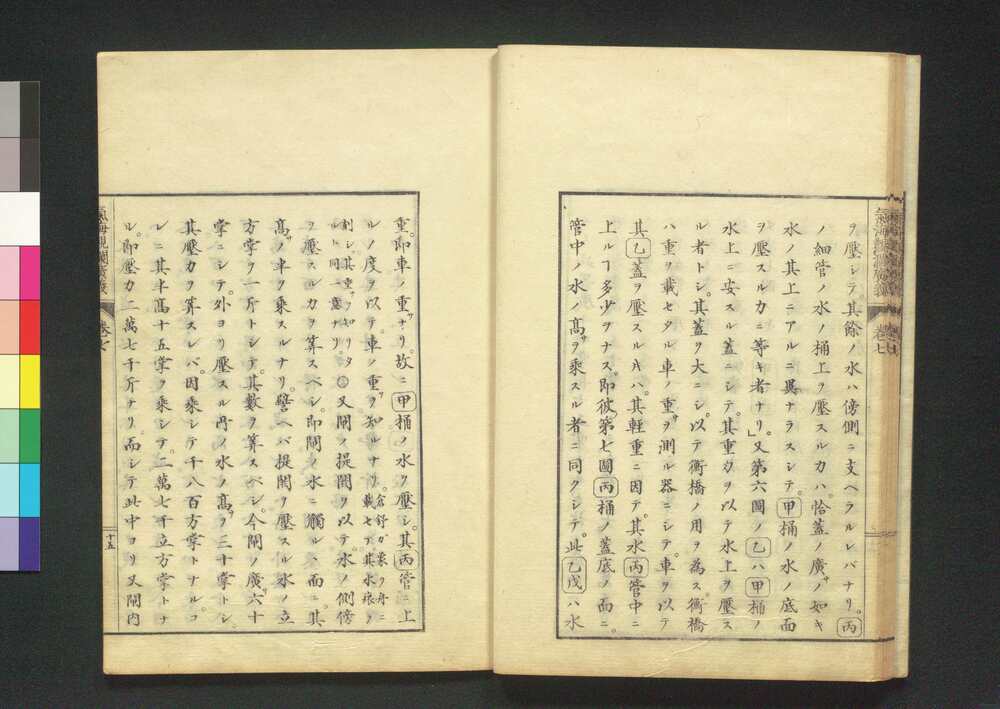 ヲ壓シテ其餘ノ水ハ傍側ニ支ヘラルレバナリ。丙
ノ細管ノ水ノ桶上ヲ壓スル力ハ。恰蓋ノ廣サノ如キ
水ノ其上ニアルニ異ナラスシテ。甲桶ノ水ノ底面
ヲ壓スル力ニ等キ者ナリ」又第六圖ノ乙ハ甲桶ノ
水上ニ安スル蓋ニシテ。其重力ヲ以テ水上ヲ壓ス
ル者トシ。其蓋ヲ大ニシ。以テ衡橋ノ用ヲ為ス。衡橋
ハ重ヲ載セタル車ノ重サヲ測ル器ニシテ。車ヲ以テ
其乙蓋ヲ壓スルキハ。其軽重ニ因テ。其水丙管中ニ
上ルヿ多少ヲナス。即彼第七圖丙桶ノ蓋底ノ面ニ。
管中ノ水ノ高サヲ乘スル者ニ同クシテ。此乙戊ハ水
氣海觀瀾廣義 卷七
重。即車ノ重サナリ。故ニ甲桶ノ水ヲ壓シ。其丙管ニ上
ルノ度ヲ以テ。車ノ重サヲ知ルナリ。倉舒ガ象ヲ舟ニ載セテ。其水痕ヲ
刻シ。其重サヲ知リタルト同一意ナリ。○又閘ノ提閼ヲ以テ。水ノ側傍
ヲ壓スル力ヲ算スベシ。即閘ノ水ニ觸ルヽ面ニ。其
高サノ半ヲ乘スルナリ。譬ヘバ提閼ヲ壓スル水ノ立
方掌ヲ一斤トシテ。其數ヲ算スベシ。今閘ノ廣サ六十
掌ニシテ。外ヨリ壓スル所ノ水ノ高サヲ三十掌トシ。
其壓力ヲ算スレバ。因乘シテ千八百方掌トナル。コ
レニ其半髙十五掌ヲ乘シテ。二萬七千立方掌トナ
ル。即壓力二萬七千斤ナリ。而シテ此中ヨリ又閘内
氣海觀瀾廣義 卷七 十五